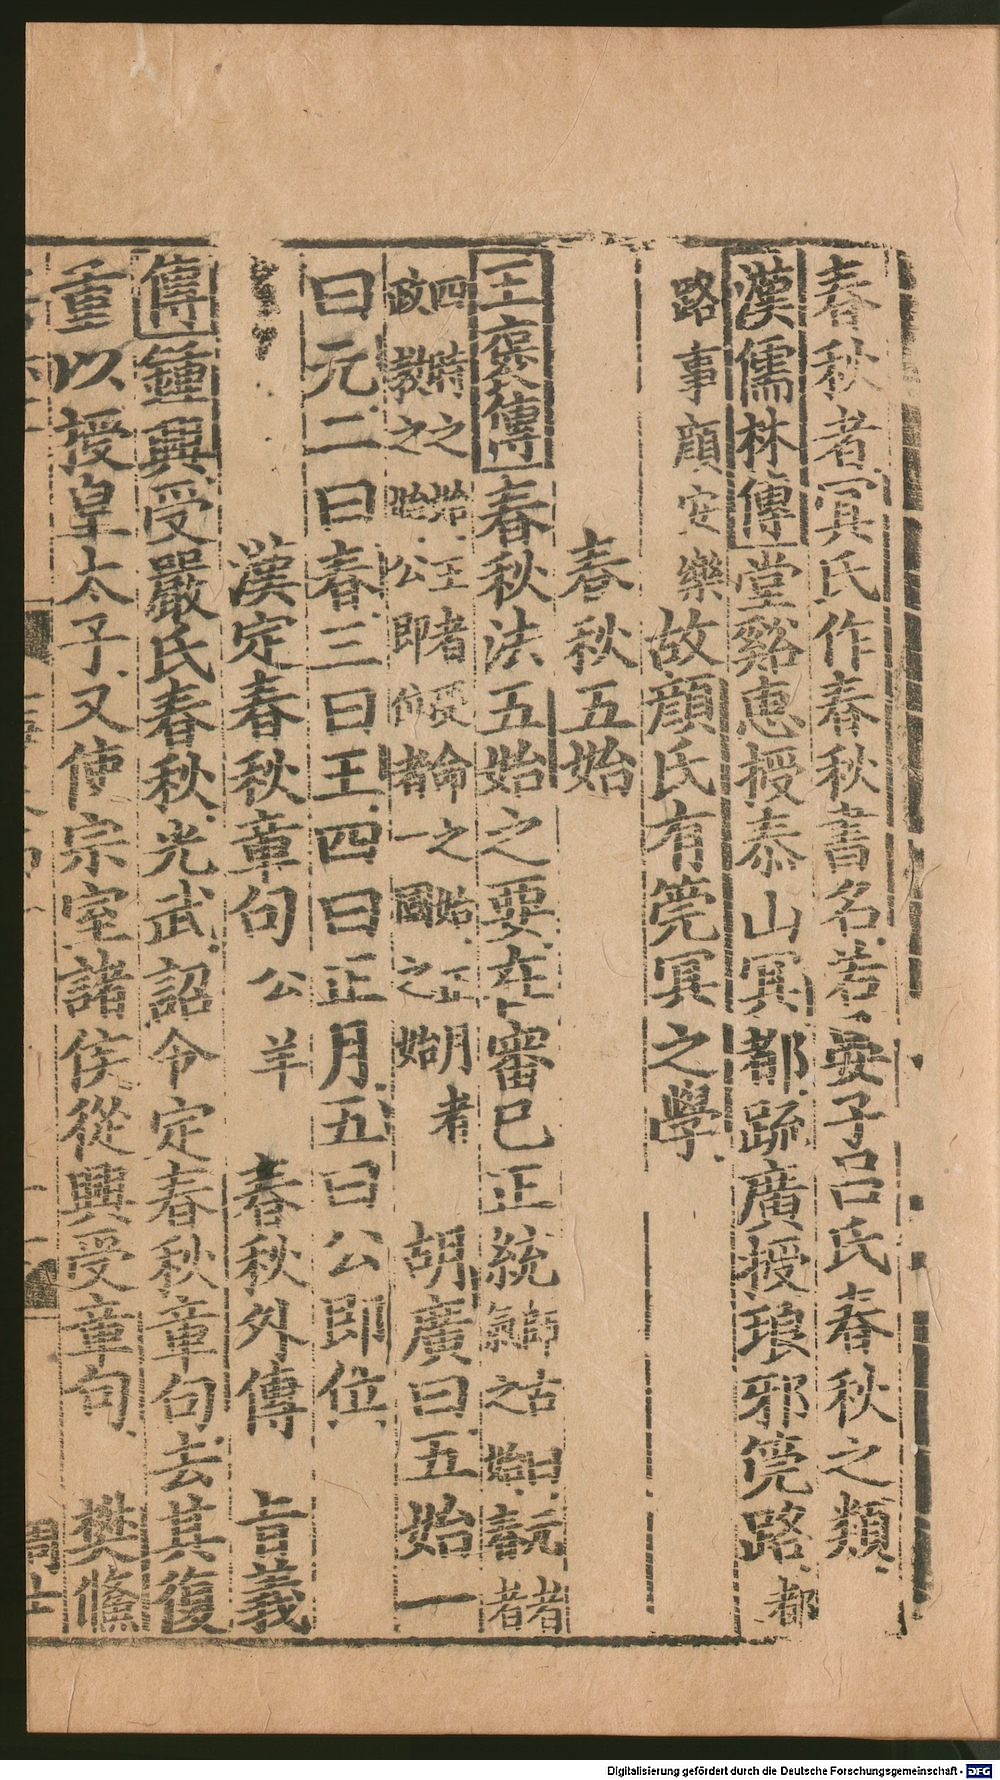 春秋者冥氏作春秋書名若晏子呂氏春秋之類
漢儒林傳堂谿惠授泰山冥都疏廣授琅邪筦路都
路事顔安樂故顔氏有筦冥之學
春秋五始
王褒傳春秋法五始之要在審已正統師古曰元者氣之始春者
四時之始王者受命之始正月者政教之始公即位者一國之始胡廣曰五始一
曰元二曰春三曰王四曰正月五曰公即位
漢定春秋章句公羊春秋外傳㫖義
傳鍾興受嚴氏春秋光武詔令定春秋章句去其復
重以授皇太子又使宗室諸侯從興受章句樊鯈
Digitalisierung gefördert durch die Deutsche Forschungsgemeinschaft - DFG